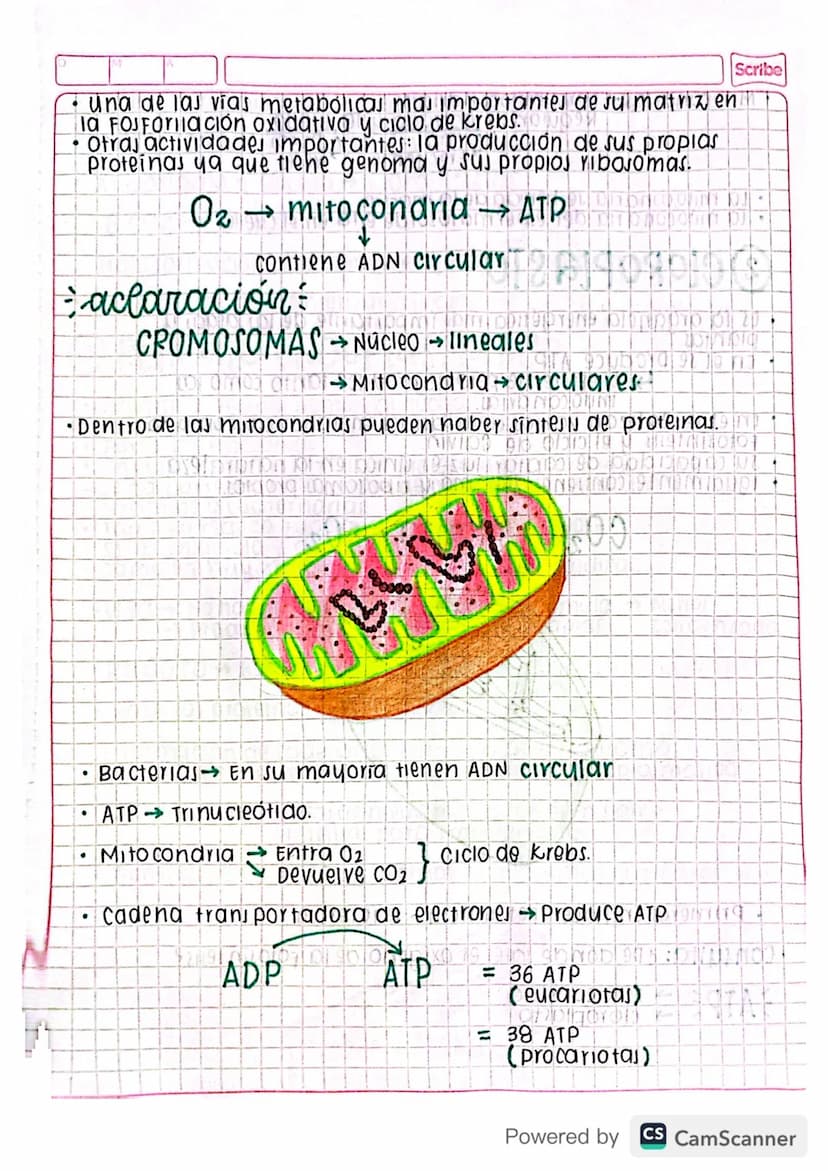 Scribe
• una de las vías metabólicas más importantes de su matriz, en
la Fosforilación oxidativa y ciclo de Krebs.
• Otras actividades importantes: la producción de sus propias
proteínas ya que tiene genoma y sus propios ribosomas.
O₂ → mitocondria → ATP
↓
contiene ADN circular
aclaración
CROMOSOMAS → Núcleo → lineales
→ Mitocondria → circulares
• Dentro de las mitocondrias pueden haber síntesis de proteínas.
• Bacterias → En su mayoría tienen ADN circular
• ATP → Trinucleótido.
• Mitocondria → Entra O₂
↘ Devuelve CO₂ } Ciclo de Krebs.
• Cadena transportadora de electrones → Produce ATP
ADP ATP = 36 ATP
(eucariotas)
= 38 ATP
(procariotas)
Powered by CS CamScanner